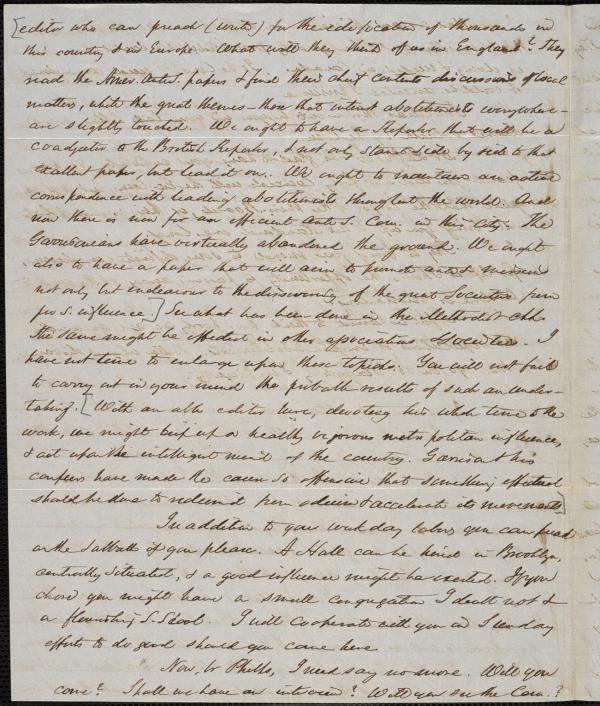 [editor who can preach (write) for the edification of thousands in
this country & in Europe. What will they think of us in England? They
read the Amer. Anti S. papers & find their chief contents discussions of local
matters, while the great themes - those that interest abolitionists everywhere -
are slightly touched. We ought to have a Reporter that will be a
coadjutor to the British Reporter, & not only stand side by side to that
excellent paper, but lead it on. We ought to maintain an active
correspondence with leading abolitionists throughout the world. And
now there is room for an efficient Anti S. Com. in this City. The
Garrisonians have virtually abandoned the ground. We ought
also to have a paper that will aim to promote anti S. missions
not only but endeavour to the dissevering of the great Societies from
pro S. influence.] See what has been done in the Methodist Chh.
The same might be effected in other associations & societies. I
have not time to enlarge upon these topicks. You will not fail
to carry out in your mind the probable results of such an under-
taking. [With an able editor here, devoting his whole time to the
work, we might keep up a healthy vigorous metropolitan influence,
& act upon the intelligent mind of the country. Garrison & his
compeers have made the cause so offensive that something effectual
should be done to redeem it from odium & accelerate its movements]
In addition to your week day labors you can preach
on the Sabbath if you please. A Hall can be hired in Brooklyn,
centrally situated, & a good influence might be exerted. If you
chose you might have a small congregation I doubt not &
a flourishing S. School. I will cooperate with you in Sunday
efforts to do good should you come here.
Now, br Phelps, I need say no more. Will you
come? Shall we have an interview? Will you see the Com.?